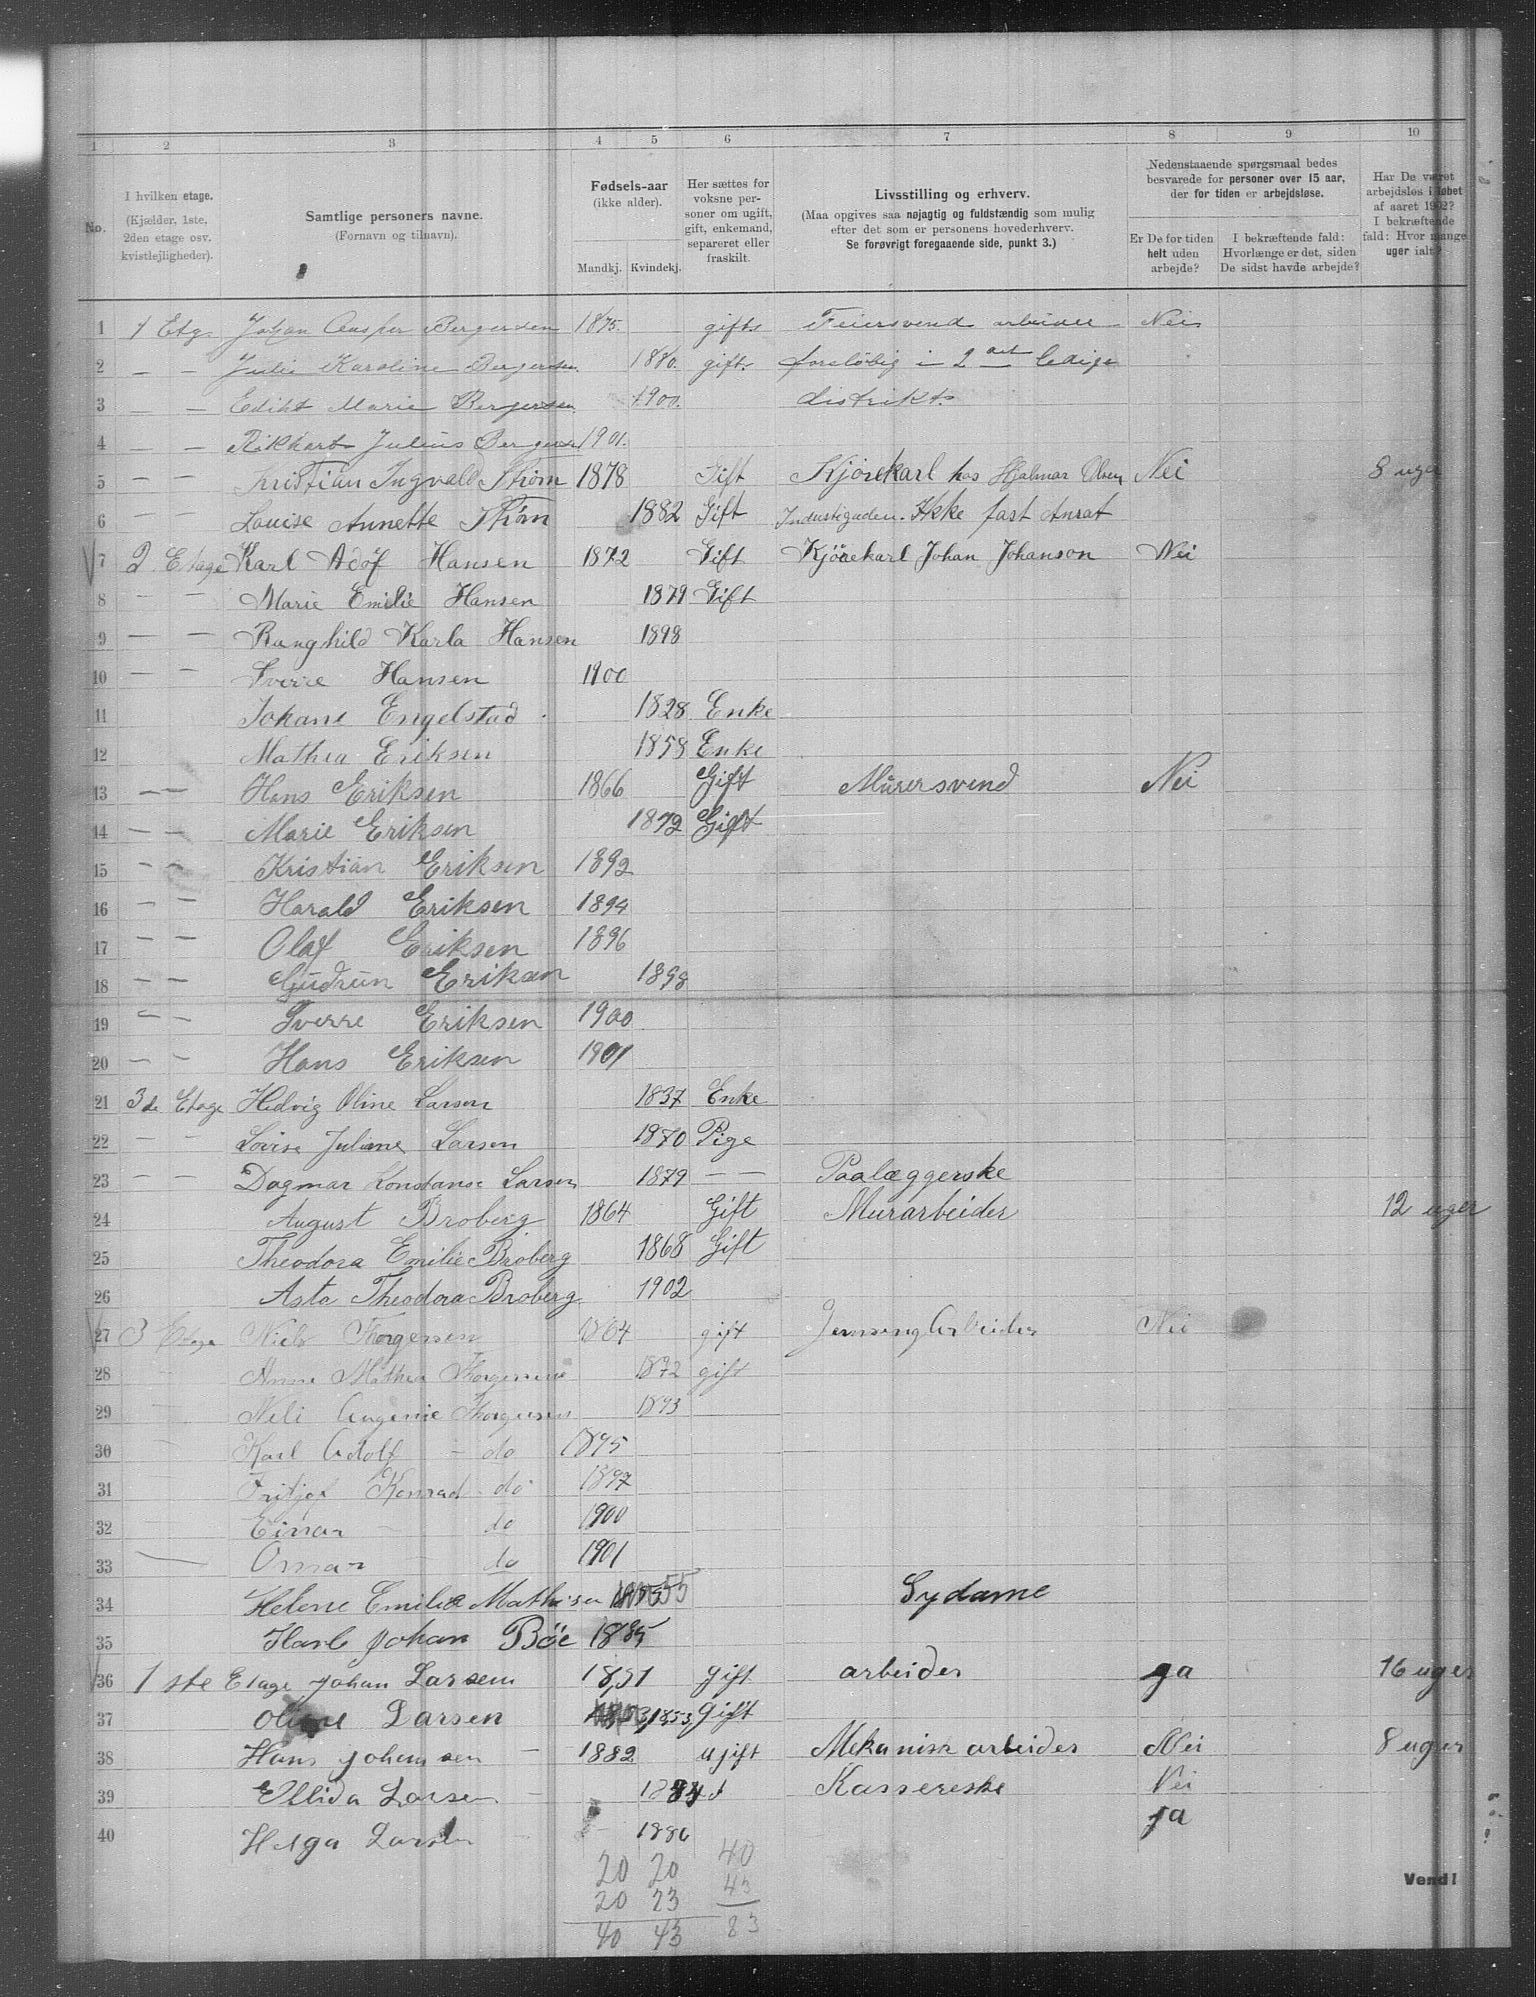 1 2 3 4 5 6 7 8 9 10
No. I hvilken etage. (Kjælder, 1ste, 2den etage osv. kvistlejligheder).
Samtlige personers navne. (Fornavn og tilnavn).
Fødsels-aar (ikke alder). Mandkj. Kvindekj.
Her sættes for voksne personer om ugift, gift, enkemand, separeret eller fraskilt.
Livsstilling og erhverv. (Maa opgives saa nøjagtig og fuldstændig som mulig efter det som er personens hovederhverv. Se forøvrigt foregaaende side, punkt 3.)
Nedenstaaende spørgsmaal bedes besvarede for personer over 15 aar, der for tiden er arbejdsløse.
Er De for tiden helt uden arbejde?
I bekræftende fald: Hvorlænge er det, siden De sidst havde arbejde?
Har De været arbejdsløs i løbet af aaret 1902? I bekræftende fald: Hvor mange uger ialt?
1 1 Etg. Johan Bergersen 1875. gift Feiersvend arbeider Nei
2 — — Julie Karoline Bergersen 1880. gift. foreløbig i 2 ledige
3 — — Edikt Marie Bergersen 1900. distrikt.
4 — — Rikhart Julius Bergersen 1901.
5 — — Kristian Ingvald Thorn 1878 Gift Kjørekarl hos Hjalmar Olsen Nei 8 uger
6 — — Louise Annette Thorn 1882 Gift Industigaden. Ikke fast Ansat
7 2 Etage Karl Adof Hansen 1872 Gift Kjørekarl Johan Johanson Nei
8 — — Marie Emilie Hansen 1879 Gift
9 — — Ranghild Karla Hansen 1898
10 — — Sverre Hansen 1900
11 Johane Engelstad 1828 Enke
12 Mathea Eriksen 1858 Enke
13 — — Hans Eriksen 1866 Gift Murersvend Nei
14 — — Marie Eriksen 1872 Gift
15 — — Kristian Eriksen 1892
16 — — Harald Eriksen 1894
17 — — Olaf Eriksen 1896
18 — — Gudrun Eriksen 1898
19 — — Sverre Eriksen 1900
20 — — Hans Eriksen 1901
21 3de Etage Hedvig Oline Larsen 1837 Enke
22 — — Lovise Juliane Larsen 1870 Pige
23 — — Dagmar Konstanse Larsen 1879 — — Paalæggerske
24 August Broberg 1864 Gift Murarbeider 12 uger
25 Theodora Emilie Broberg 1868 Gift
26 Asta Theodora Broberg 1902
27 3 Etage Niels Thorgersen 1864 gift Arbeider Nei
28 Anne Mathea Thorgersen 1872 gift
29 Neli Augenie Thorgersen 1893
30 Karl Adolf do 1895
31 Fritjof Konrad do 1897
32 Einar do 1900
33 Omar do 1901
34 Helene Emilie Mathisen 55 Sydame
35 Karl Johan Böe 1885
36 1ste Etage Johan Larsen 1851 gift arbeider ja 16 uger
37 Oline Larsen 1853 Gift
38 Hans Johan sen — 1882 ugift Mekanisk arbeider Nei 8 uger
39 Ellida Larsen — 1884 Kassereske Nei
40 Helga Larsen — 1886 ja
20 20 40
20 23 43
40 43 83
Vend!